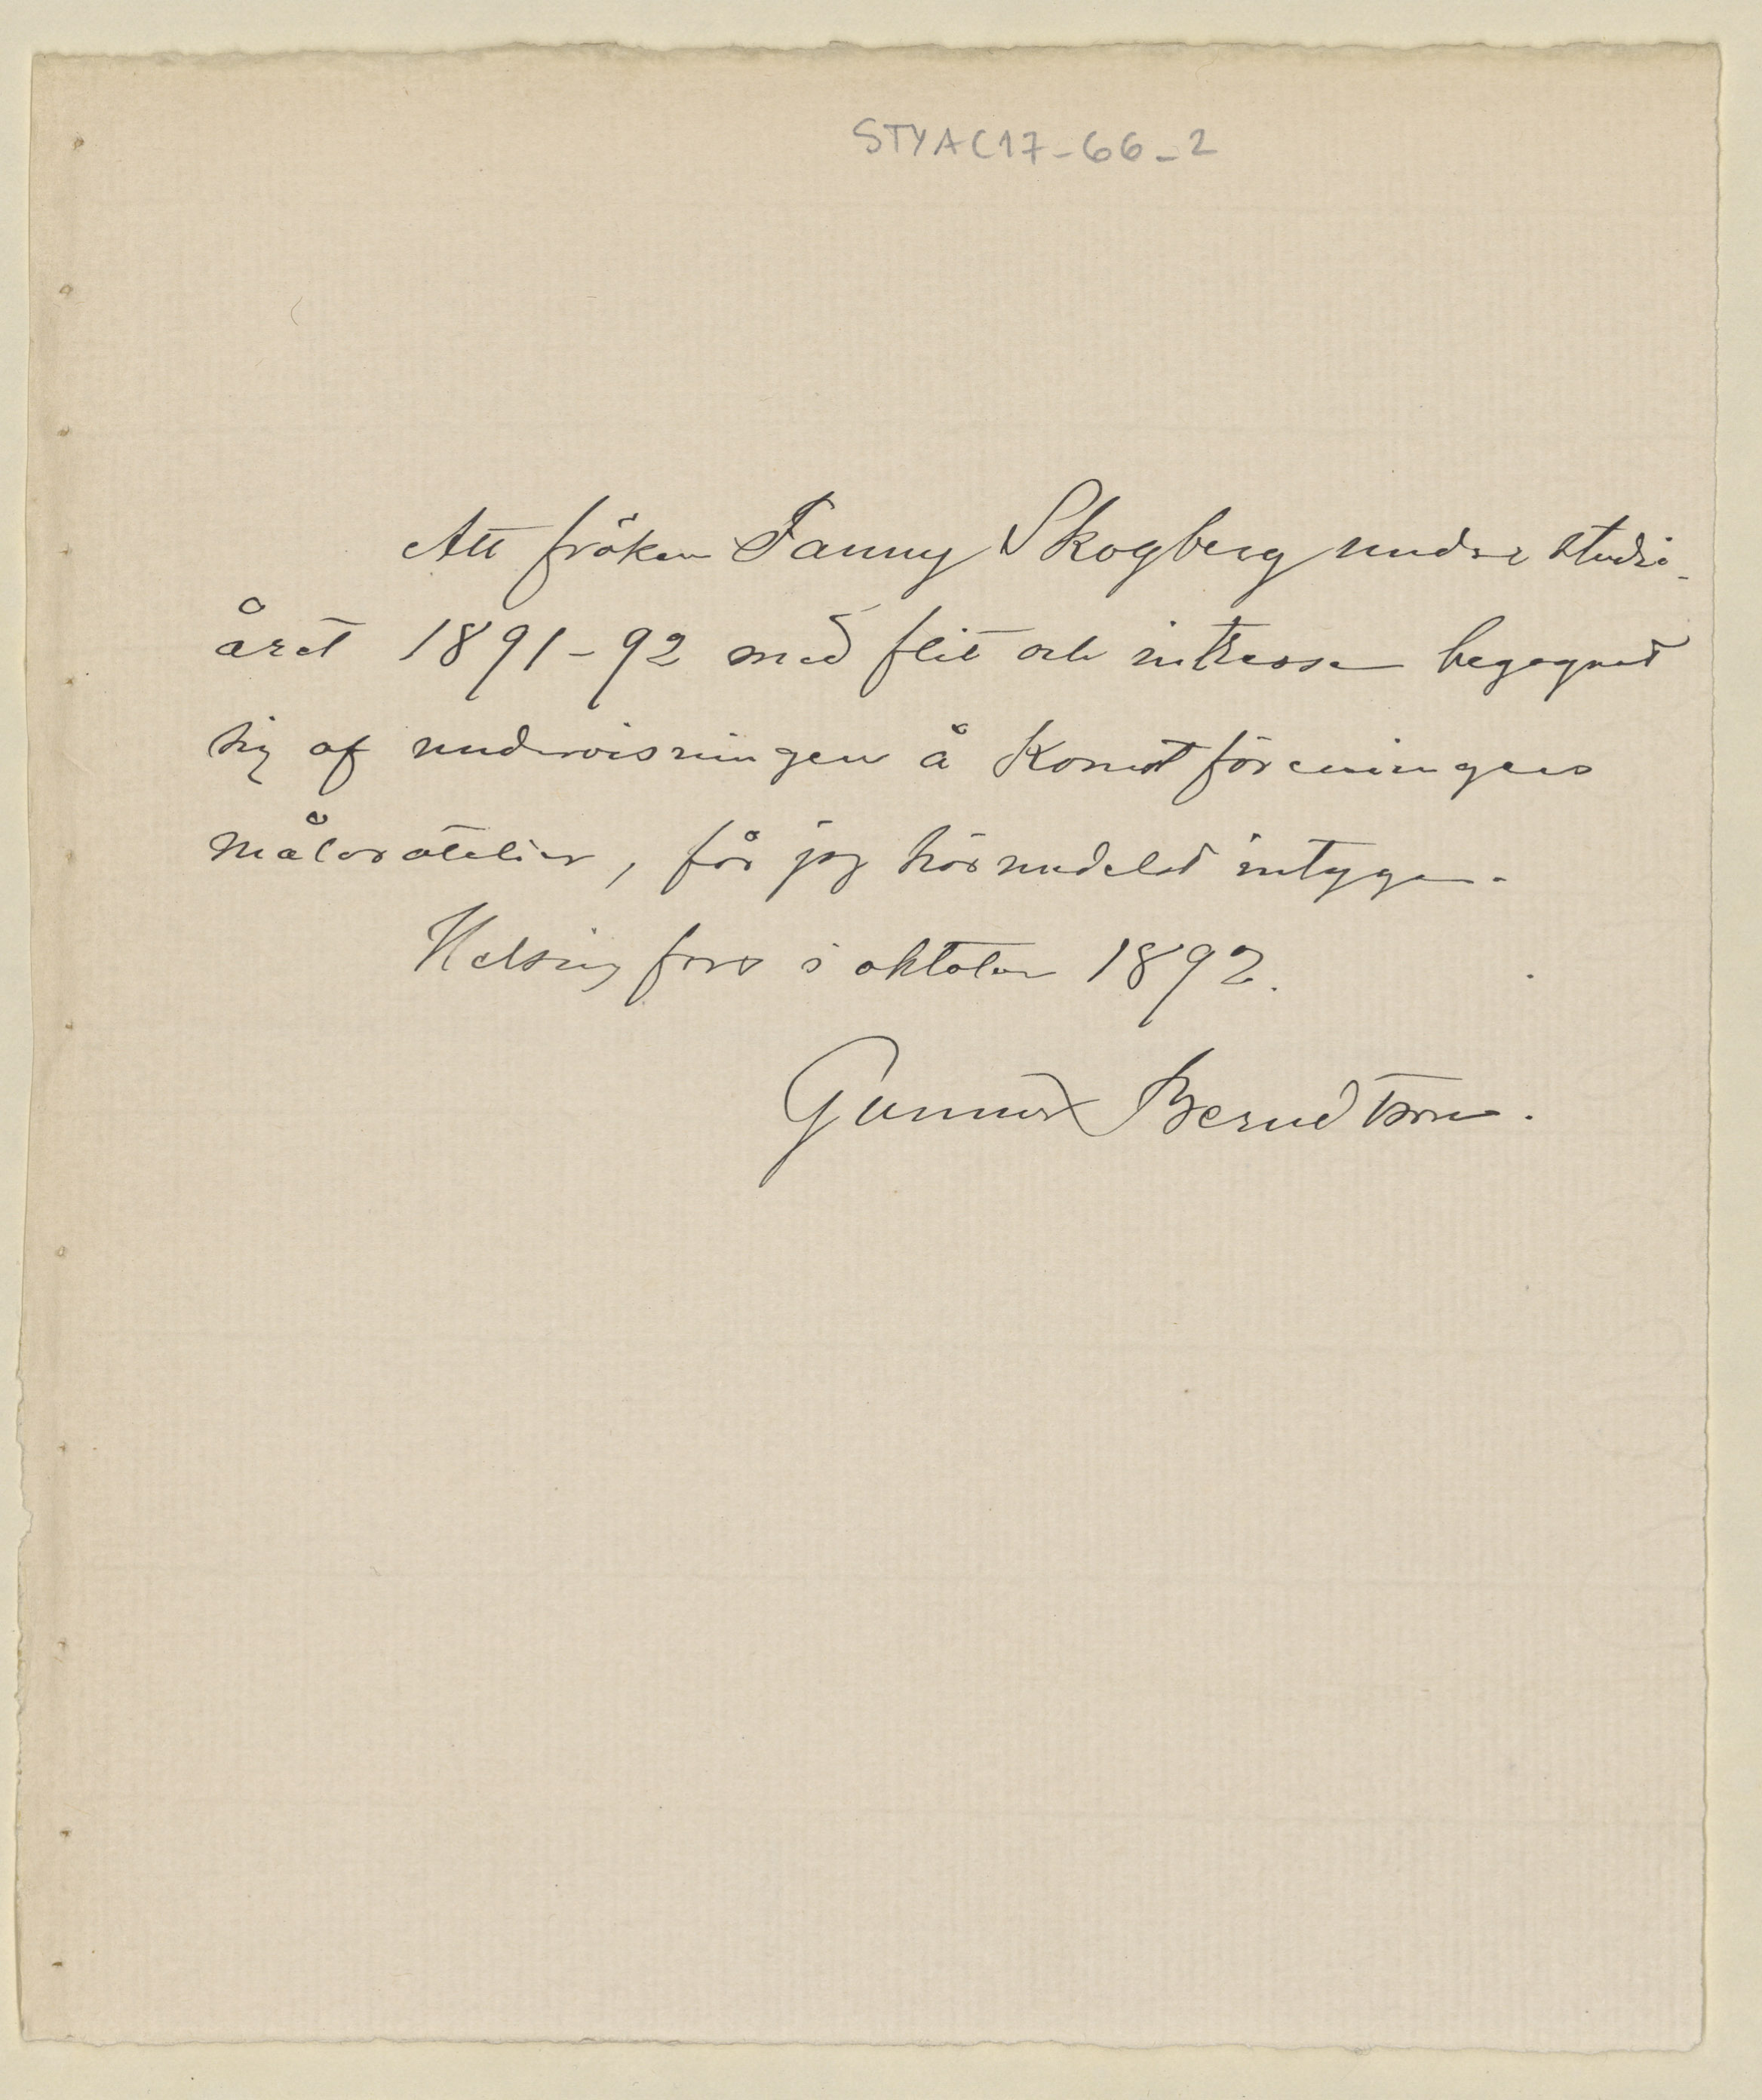 STYAC17-66-2
Att fröken Fanny Skogberg under studie-
året 1891-92 med flit och intresse begagnat
sig af undervisningen å Konstföreningens
målaratelier, får jag härmedelst intyga.
Helsingfors i oktober 1892.
Gunnar Berndtson.